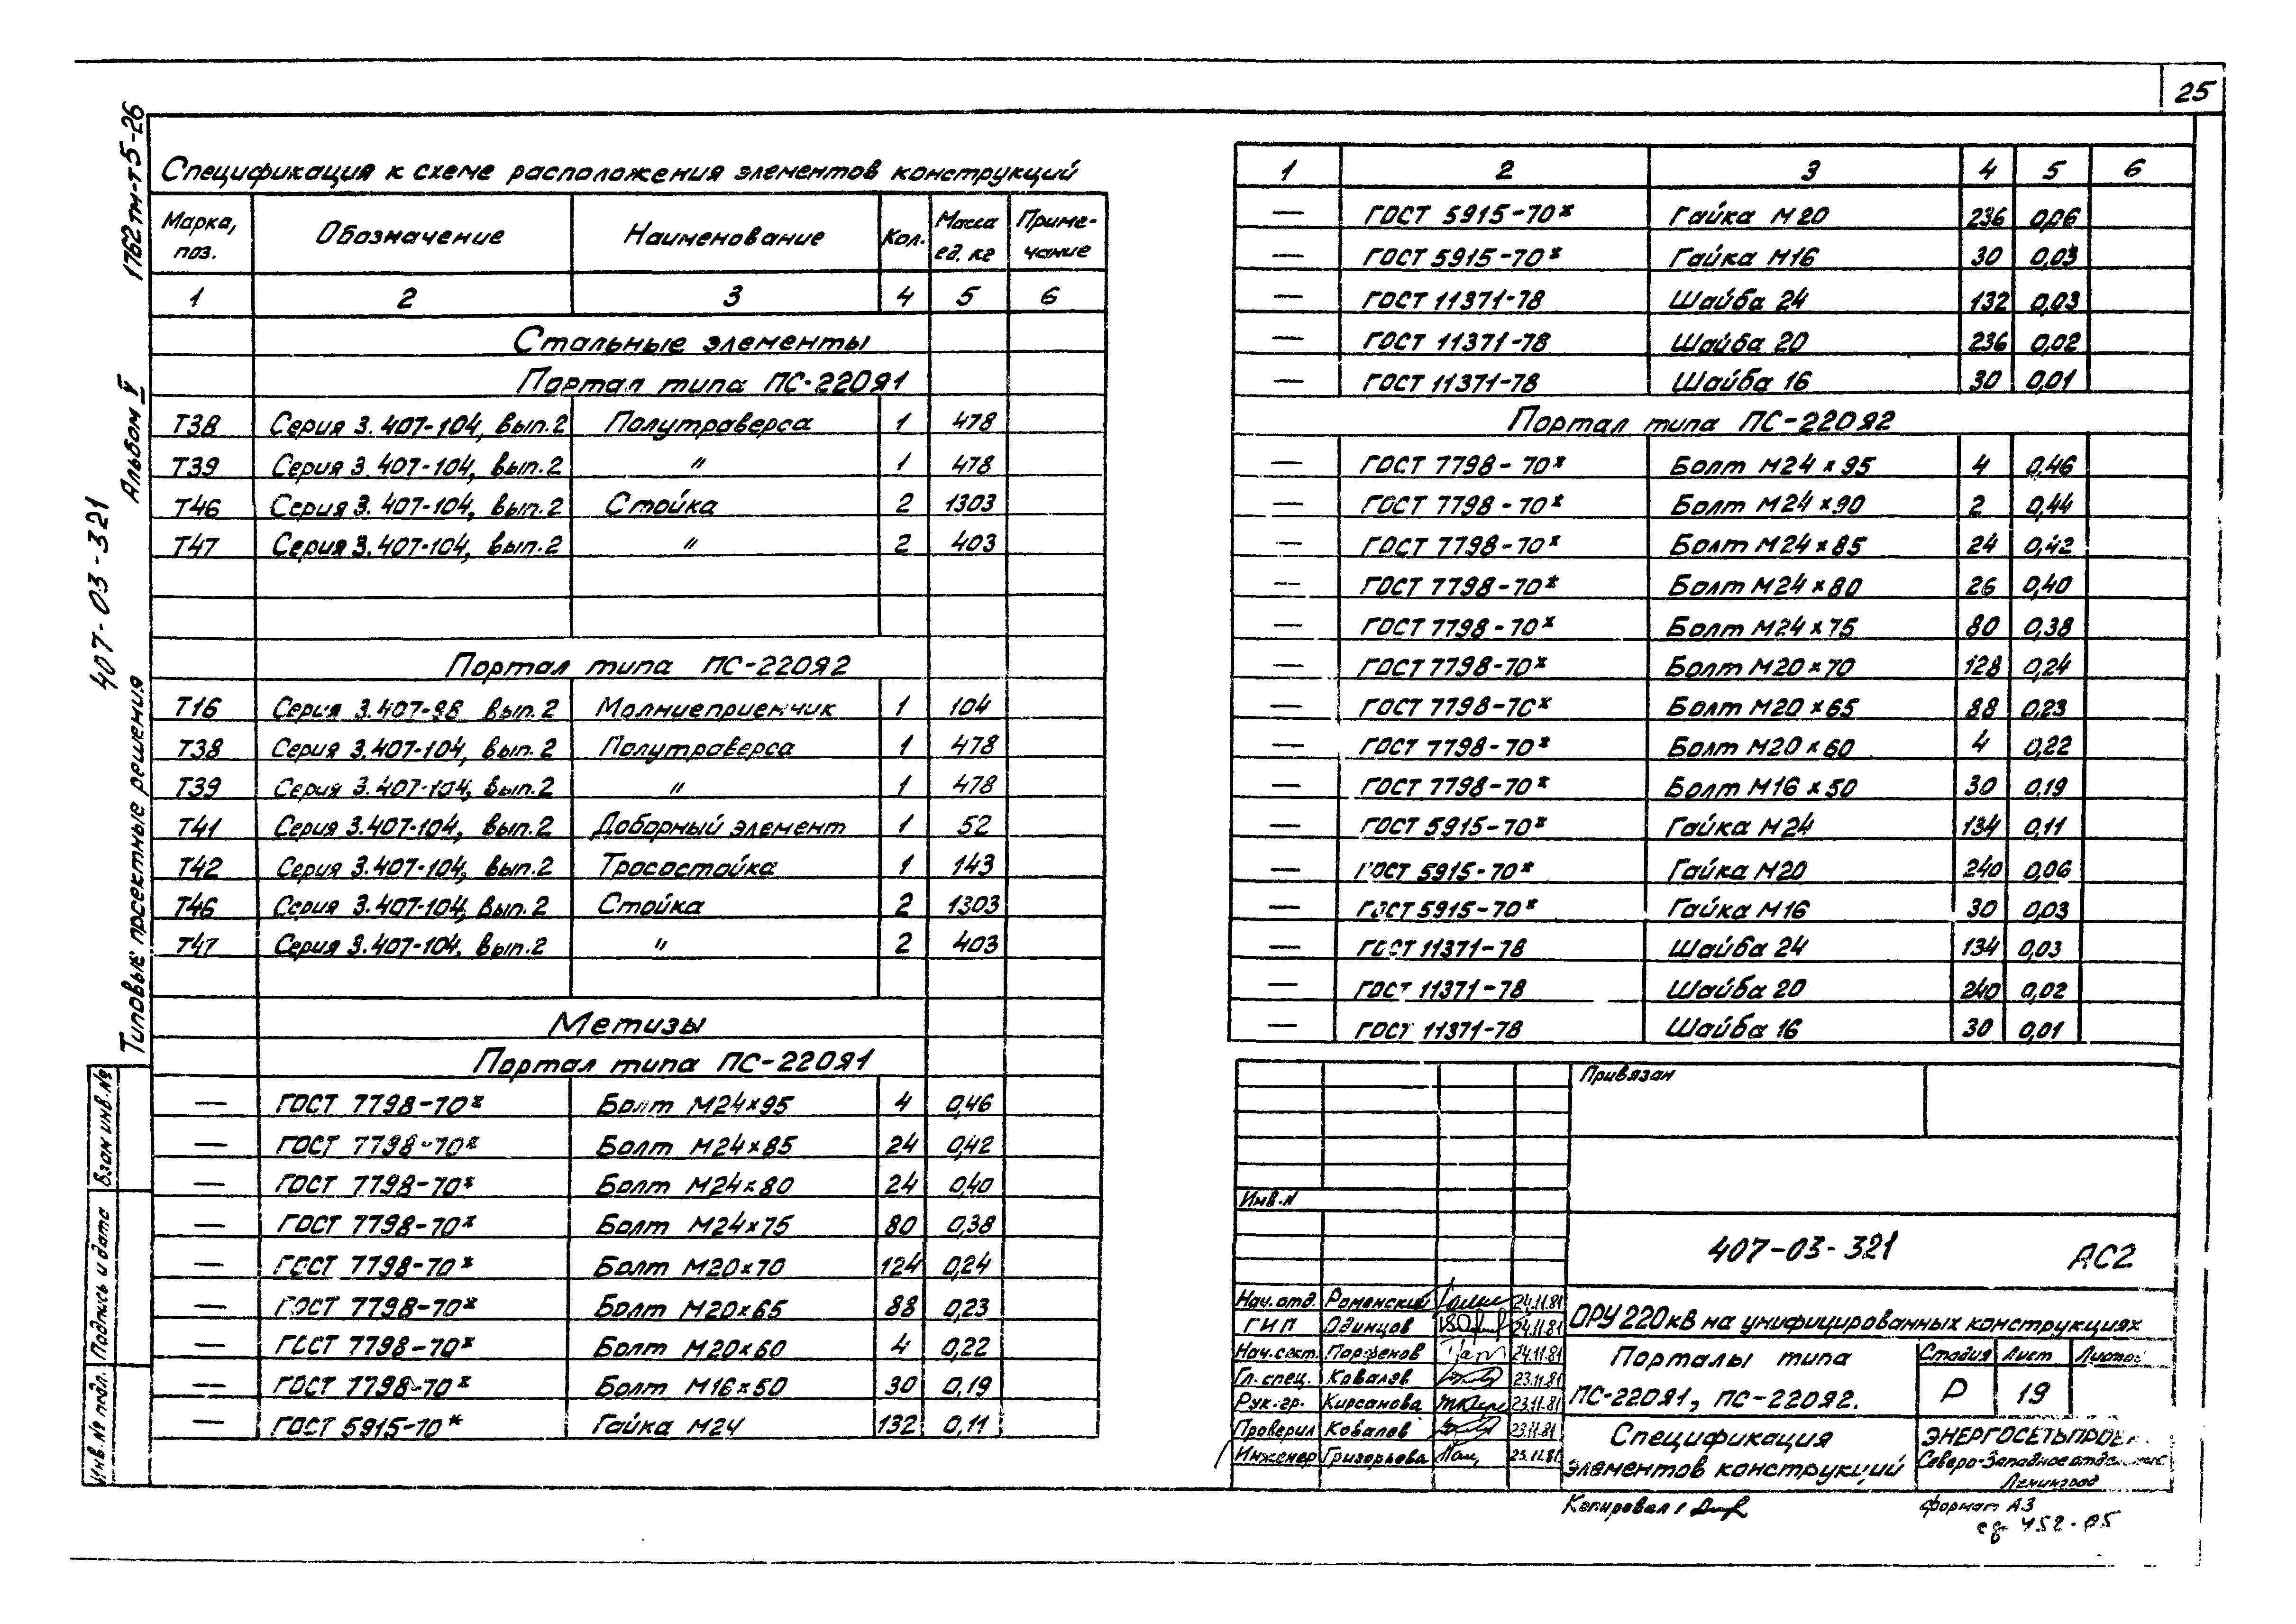 25
1762тм-т5-26
Альбом V
407-03-321
Типовые проектные решения
Взам инв.№
Подпись и дата
Инв.№ подл.
Спецификация к схеме расположения элементов конструкций
Марка, поз. Обозначение Наименование Кол. Масса ед. кг Приме-чание
1 2 3 4 5 6
Стальные элементы
Портал типа ПС-220Я1
Т38 Серия 3.407-104, вып.2 Полутраверса 1 478
Т39 Серия 3.407-104, вып.2 " 1 478
Т46 Серия 3.407-104, вып.2 Стойка 2 1303
Т47 Серия 3.407-104, вып.2 " 2 403
Портал типа ПС-220Я2
Т16 Серия 3.407-98 вып.2 Молниеприемчик 1 104
Т38 Серия 3.407-104, вып.2 Полутраверса 1 478
Т39 Серия 3.407-104, вып.2 " 1 478
Т41 Серия 3.407-104, вып.2 Доборный элемент 1 52
Т42 Серия 3.407-104, вып.2 Тросостойка 1 143
Т46 Серия 3.407-104, вып.2 Стойка 2 1303
Т47 Серия 3.407-104, вып.2 " 2 403
Метизы
Портал типа ПС-220Я1
— ГОСТ 7798-70* Болт М24×95 4 0,46
— ГОСТ 7798-70* Болт М24×85 24 0,42
— ГОСТ 7798-70* Болт М24×80 24 0,40
— ГОСТ 7798-70* Болт М24×75 80 0,38
— ГОСТ 7798-70* Болт М20×70 124 0,24
— ГОСТ 7798-70* Болт М20×65 88 0,23
— ГОСТ 7798-70* Болт М20×60 4 0,22
— ГОСТ 7798-70* Болт М16×50 30 0,19
— ГОСТ 5915-70* Гайка М24 132 0,11
1 2 3 4 5 6
— ГОСТ 5915-70* Гайка М20 236 0,06
— ГОСТ 5915-70* Гайка М16 30 0,03
— ГОСТ 11371-78 Шайба 24 132 0,03
— ГОСТ 11371-78 Шайба 20 236 0,02
— ГОСТ 11371-78 Шайба 16 30 0,01
Портал типа ПС-220Я2
— ГОСТ 7798-70* Болт М24×95 4 0,46
— ГОСТ 7798-70* Болт М24×90 2 0,44
— ГОСТ 7798-70* Болт М24×85 24 0,42
— ГОСТ 7798-70* Болт М24×80 26 0,40
— ГОСТ 7798-70* Болт М24×75 80 0,38
— ГОСТ 7798-70* Болт М20×70 128 0,24
— ГОСТ 7798-70* Болт М20×65 88 0,23
— ГОСТ 7798-70* Болт М20×60 4 0,22
— ГОСТ 7798-70* Болт М16×50 30 0,19
— ГОСТ 5915-70* Гайка М24 134 0,11
— ГОСТ 5915-70* Гайка М20 240 0,06
— ГОСТ 5915-70* Гайка М16 30 0,03
— ГОСТ 11371-78 Шайба 24 134 0,03
— ГОСТ 11371-78 Шайба 20 240 0,02
— ГОСТ 11371-78 Шайба 16 30 0,01
Привязан
Инв.N
407-03-321 АС2
Нач.отд. Роменский 24.11.81
ГИП Одинцов 24.11.81
Нач.сект. Парфенов 24.11.81
Гл.спец. Ковалев 23.11.81
Рук.гр. Кирсанова 23.11.81
Проверил Ковалев 23.11.81
Инженер Григорьева 23.11.81
ОРУ 220кВ на унифицированных конструкциях
Порталы типа
ПС-220Я1, ПС-220Я2.
Стадия Лист
Р 19
Спецификация
элементов конструкций
Северо-Западное
Ленинград
Копировал:
формат А3
452-05